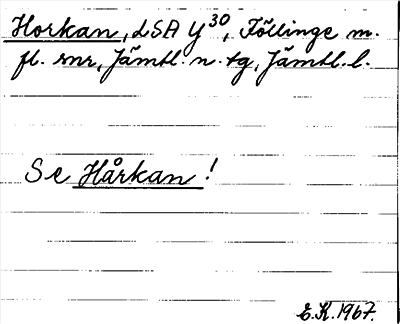 Horkan, LSA Y30, Föllinge m.
fl. snr, Jämtl. n. tg, Jämtl. l.
Se Hårkan!
E.K. 1967.